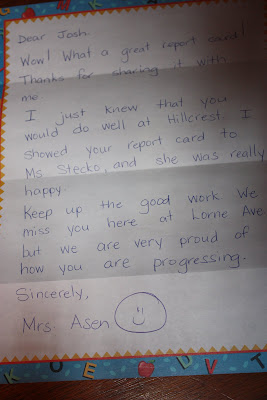 Dear Josh.
Wow! What a great report card!
Thanks for sharing it with
me.
I just knew that you
would do well at Hillcrest. I
showed your report card to
Ms. Stecko, and she was really
happy.
Keep up the good work We
miss you here at Lorne Ave
but we are very proud of
how you are progressing.
Sincerely,
Mrs. Asen